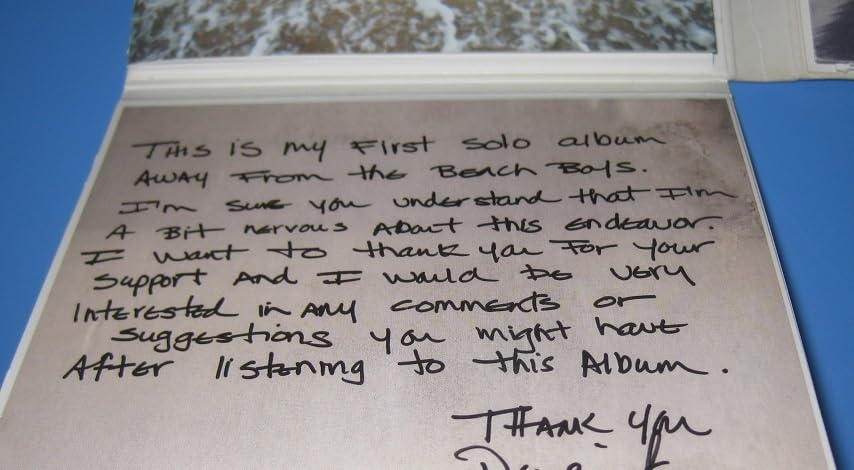 THis is my First solo album
AWAY From the BEACH BOYS.
I'm sure you understand that I'm
A Bit nervous About this endeavor.
I want to thank you For your
support And I would be very
Interested in ANY comments or
suggestions you might have
After listening to this Album.
THANK You